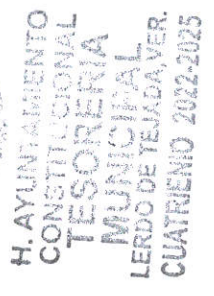 H. AYUNTAMIENTO
CONSTITUCIONAL
TESORERIA
MUNICIPAL
LERDO DE TEJADA, VER.
CUATRIENIO 2022-2025